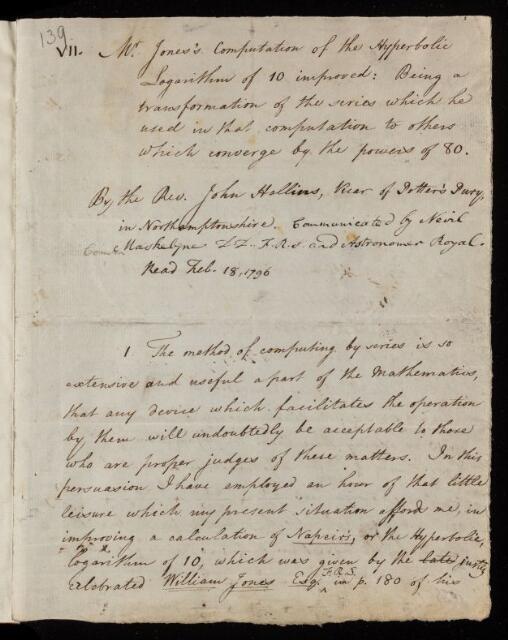 139
VII. Mr. Jones's Computation of the Hyperbolic
Logarithm of 10 improved: Being a
transformation of the series which he
used in that computation to others
which converge by the powers of 80.
By the Rev. John Hellins, Vicar of Potter's Pury,
in Northamptonshire. Communicated by Nevil
Maskelyne D.D. F.R.S. and Astronomer Royal.
Read Feb. 18, 1796
1 The method of computing by series is so
extensive and useful a part of the Mathematics,
that any device which facilitates the operation
by them will undoubtedly be acceptable to those
who are proper judges of these matters. In this
persuasion I have employed an hour of that little
leisure which my present situation afford me, in
improving a calculation of Napeir's, or the Hyperbolic,
Logarithm of 10, which was given by the late justly
celebrated William Jones Esqr. F.R.S. in p. 180 of his